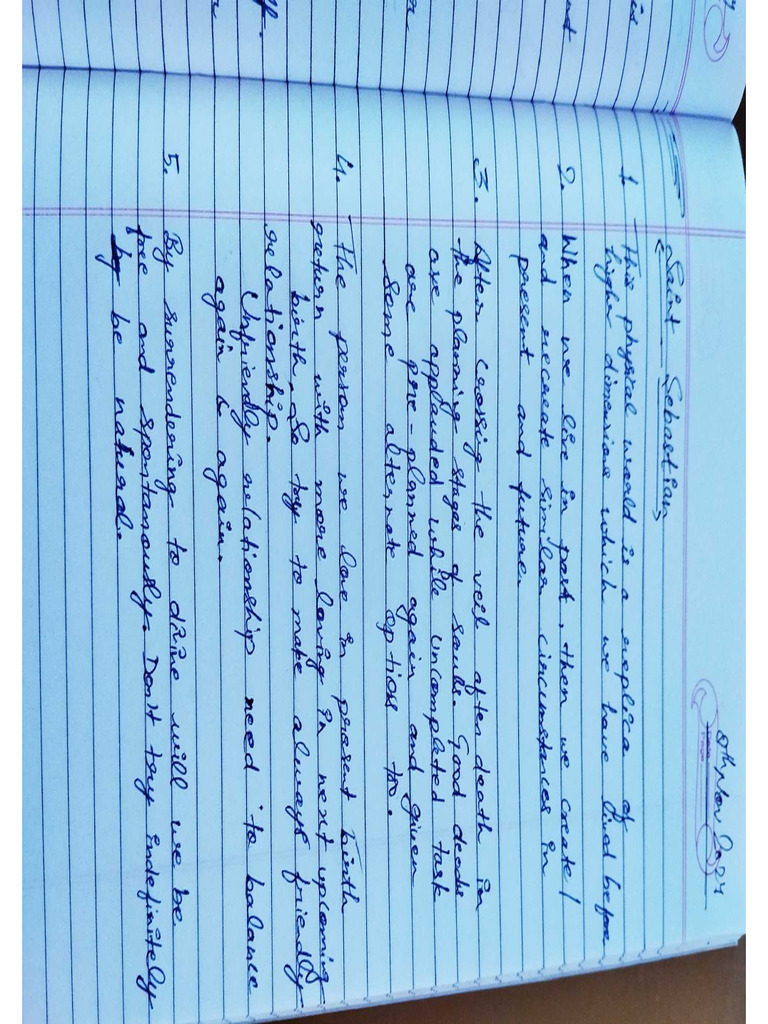 8th Nov 2024
Saint Sebastian
1. This physical world is a replica of
higher dimensions which we have lived before
2. When we live in past, then we create /
and recreate similar circumstances in
present and future.
3. After crossing the veil after death in
the planning stages of souls. Good deeds
are applauded while uncompleted task
are pre-planned again and given
some alternate option too.
4. The person we love in present birth
return with more loving in next upcoming
birth. So try to make always friendly
relationship.
Unfriendly relationship need to balance
again & again.
5. By surrendering to divine will we be
free and spontanously. Don't try indefinitely
by be natural.